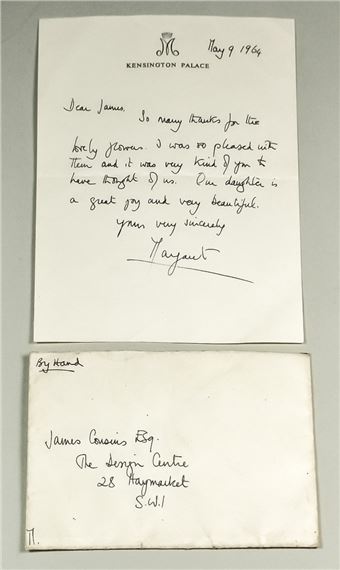 May 9 1964
M
KENSINGTON PALACE
Dear James,
So many thanks for the
lovely flowers. I was so pleased with
them and it was very kind of you to
have thought of us. Our daughter is
a great joy and very beautiful.
Yours very sincerely
Margaret
By Hand
James Cousins Esq.
The Design Centre
28 Haymarket
S.W.1
M.